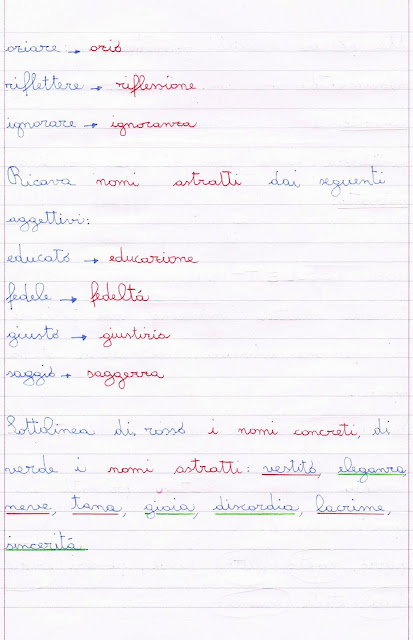 oziare → ozio
riflettere → riflessione
ignorare → ignoranza
Ricava nomi astratti dai seguenti
aggettivi:
educato → educazione
fedele → fedeltà
giusto → giustizia
saggio → saggezza
Sottolinea di rosso i nomi concreti, di
verde i nomi astratti: vestito, eleganza,
neve, tana, gioia, discordia, lacrime,
sincerità